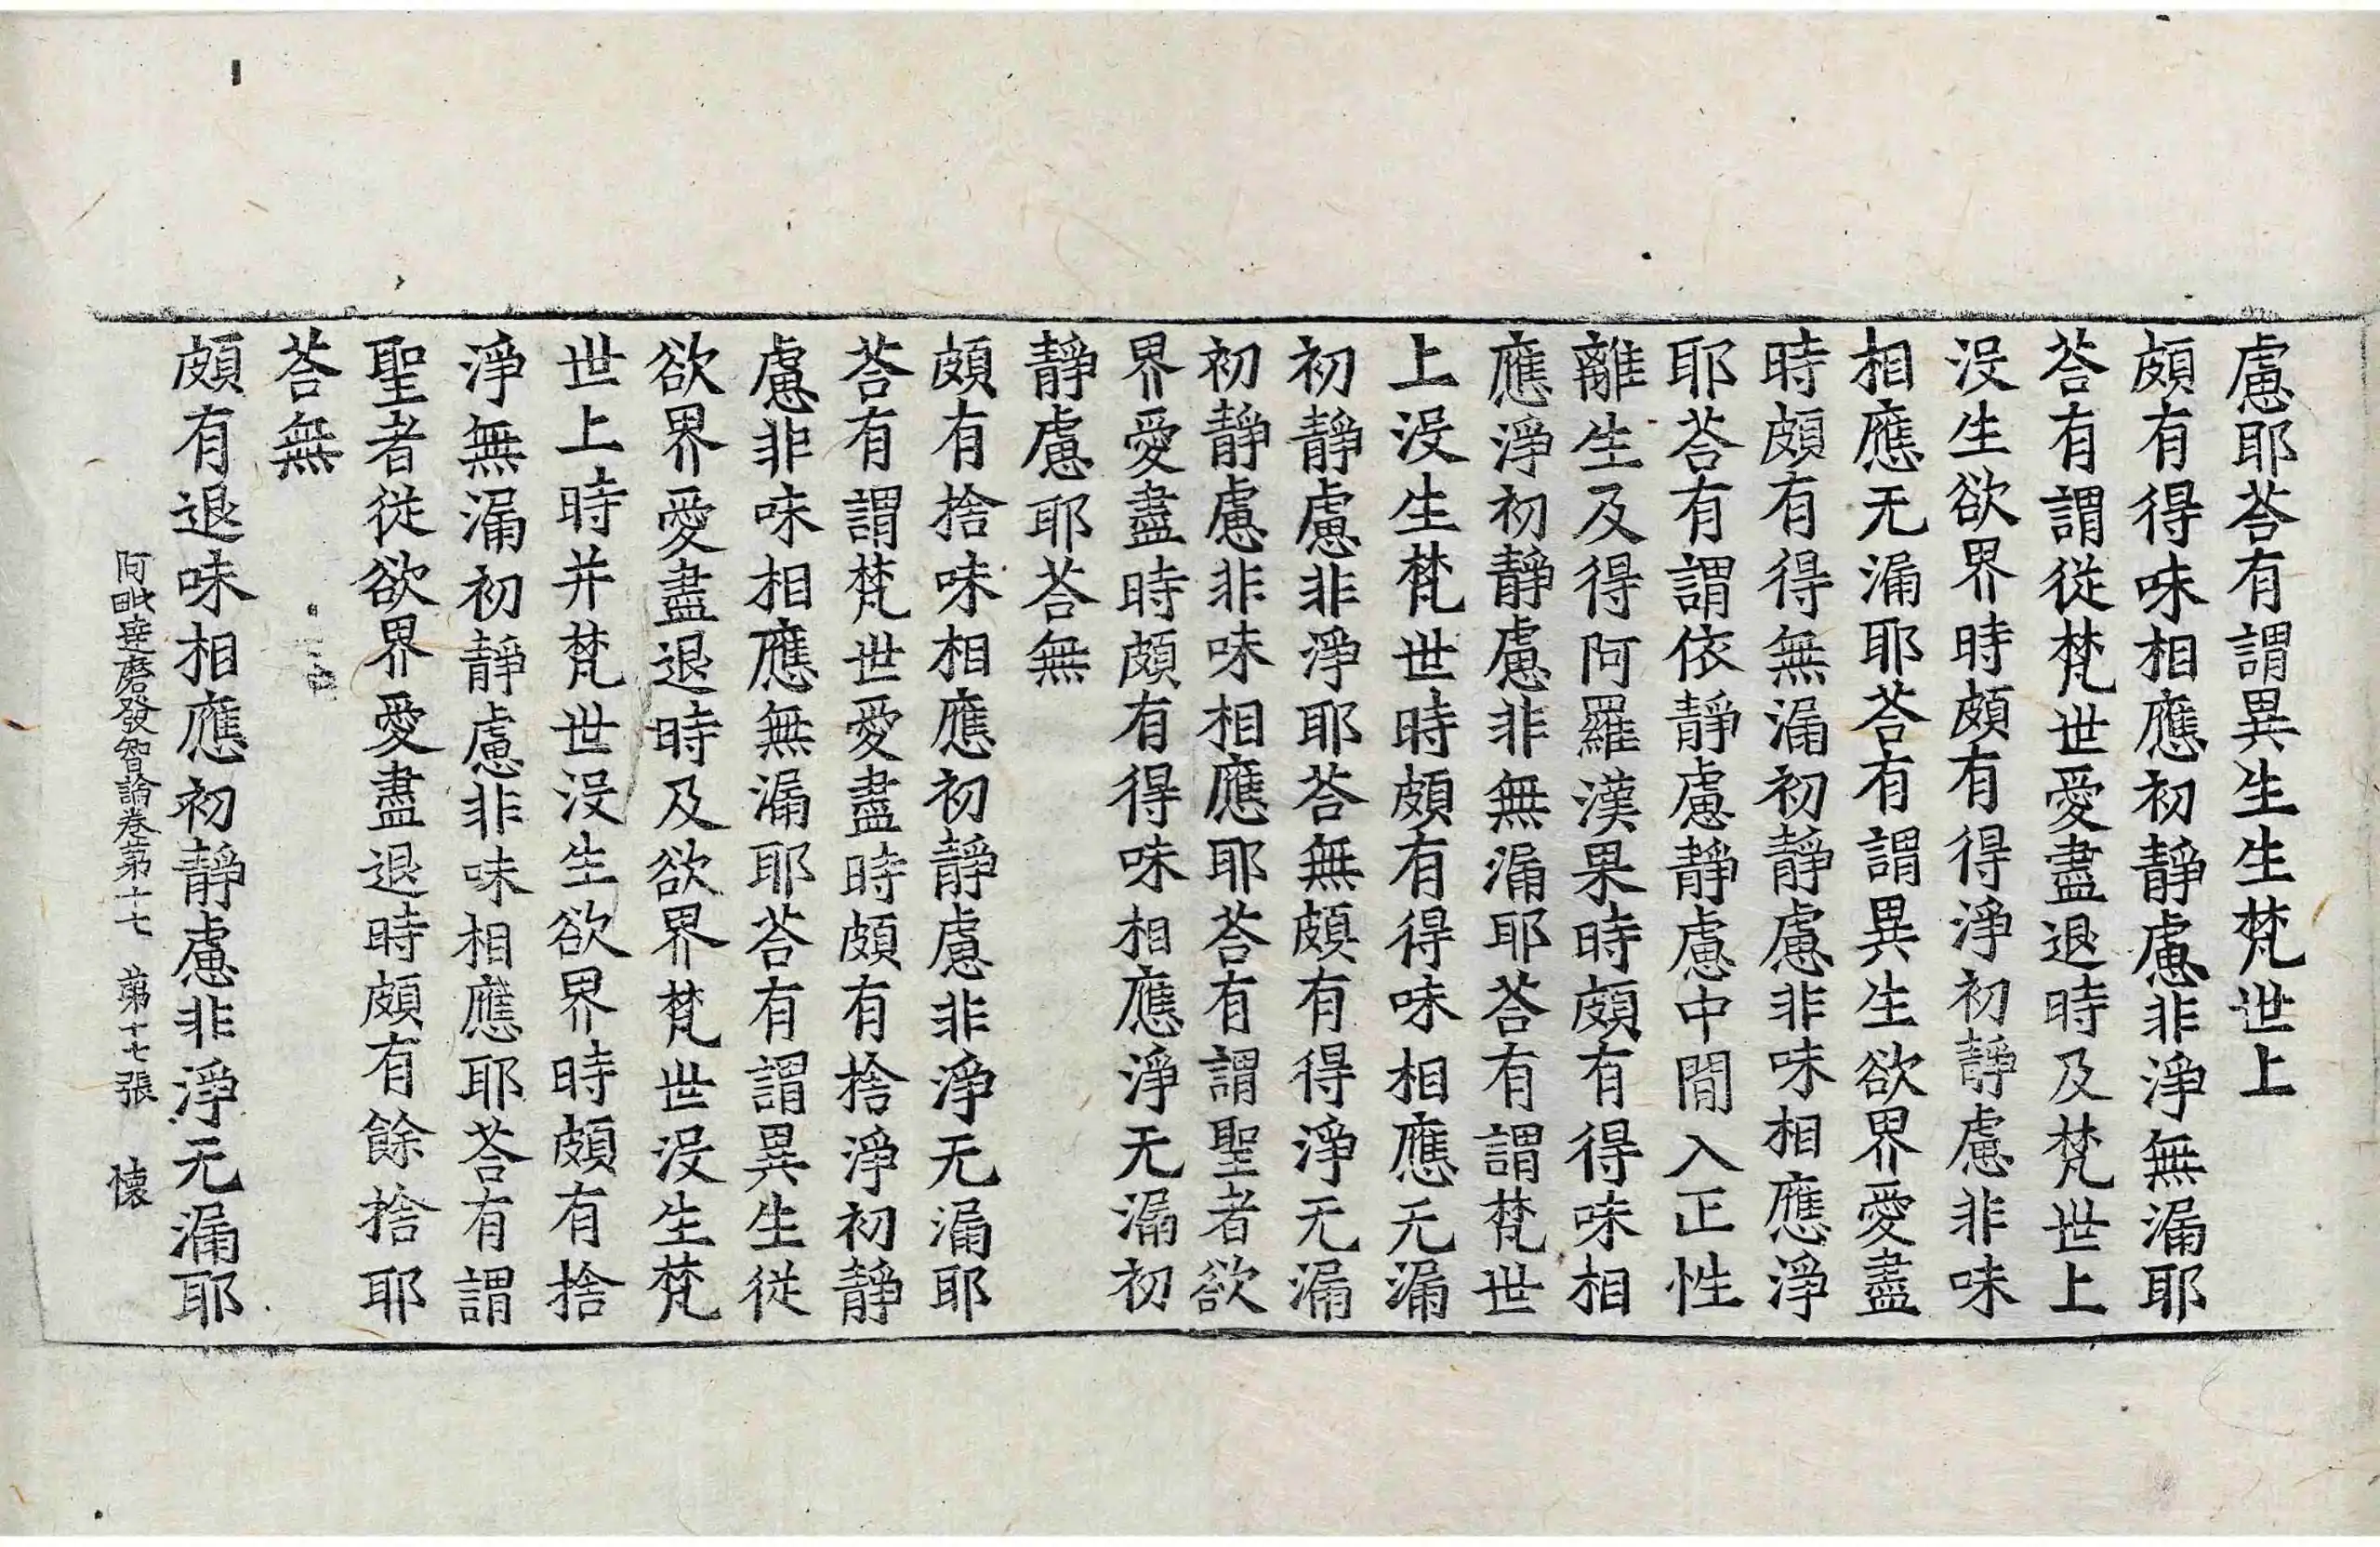 慮耶荅有謂異生生梵世上
頗有得味相應初靜慮非淨無漏耶
荅有謂従梵世愛盡退時及梵世上
没生欲界時頗有得淨初靜慮非味
相應无漏耶荅有謂異生欲界愛盡
時頗有得無漏初靜慮非味相應淨
耶荅有謂依靜慮靜慮中間入正性
離生及得阿羅漢果時頗有得味相
應淨初靜慮非無漏耶荅有謂梵世
上没生梵世時頗有得味相應无漏
初靜慮非淨耶荅無頗有得淨无漏
初靜慮非味相應耶荅有謂聖者欲
界愛盡時頗有得味相應淨无漏初
靜慮耶荅無
頗有捨味相應初靜慮非淨无漏耶
荅有謂梵世愛盡時頗有捨淨初靜
慮非味相應無漏耶荅有謂異生従
欲界愛盡退時及欲界梵世没生梵
世上時并梵世没生欲界時頗有捨
淨無漏初靜慮非味相應耶荅有謂
聖者従欲界愛盡退時頗有餘捨耶
荅無
頗有退味相應初靜慮非淨无漏耶
阿毗達磨發智論卷第十七 第十七張 懐